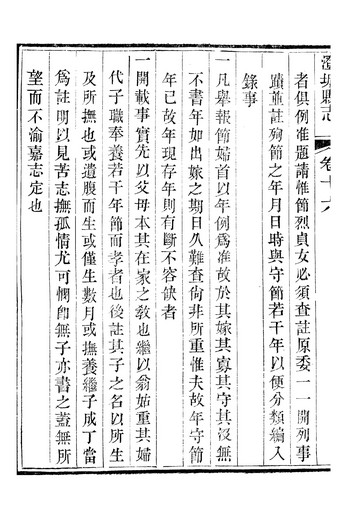 澄城縣志 卷十六
者俱例准題請惟節烈貞女必須查註原委一一開列事
蹟並註殉節之年月日時與守節若干年以便分類編入
錄事
一凡舉報節婦首以年例爲准故於其嫁其寡其守其沒無
不書年如出嫁之期日久難查尙非所重惟夫故年守節
年已故年現存年則有斷不容缺者
一開載事實先以父母本其在家之敎也繼以翁姑重其婦
代子職奉養若干年節而孝者也後註其子之名以所生
及所撫也或遺腹而生或僅生數月或撫養繼子成丁當
爲註明以見苦志撫孤情尤可憫卽無子亦書之蓋無所
望而不渝嘉志定也